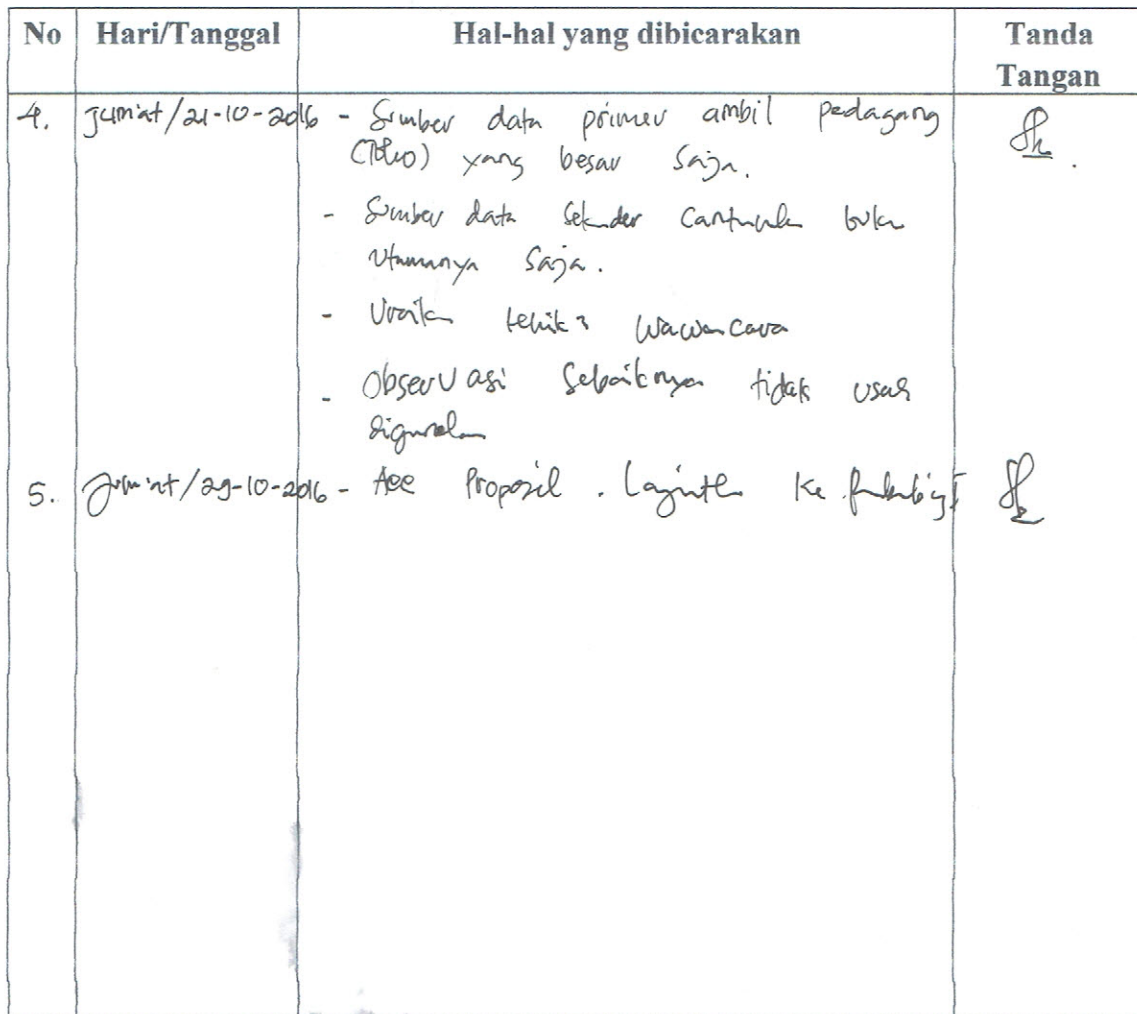 No Hari/Tanggal Hal-hal yang dibicarakan Tanda Tangan
4. Jum'at/21-10-2016 - Sumber data primer ambil pedagang
(Toko) yang besar saja.
- Sumber data sekunder cantumkan buku
Utamanya saja.
- Uraikan teknik2 wawancara
- Observasi sebaiknya tidak usah
digunakan
5. Jum'at/29-10-2016 - Acc Proposal. Lanjutkan ke pembimbing I